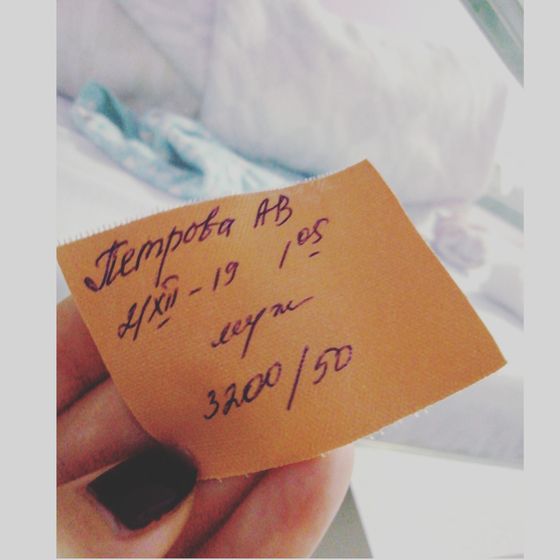 Петрова АВ
2/XII - 19 1 05
муж
3200/50